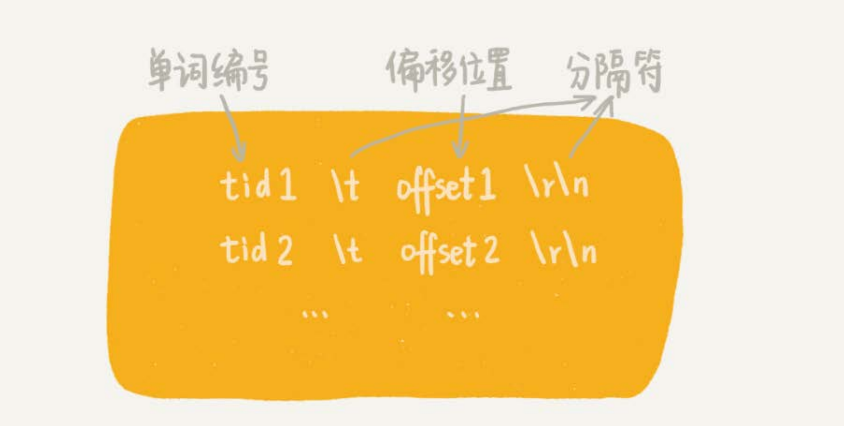 单词编号 偏移位置 分隔符
tid1 \t offset1 \r\n
tid2 \t offset2 \r\n
... ...